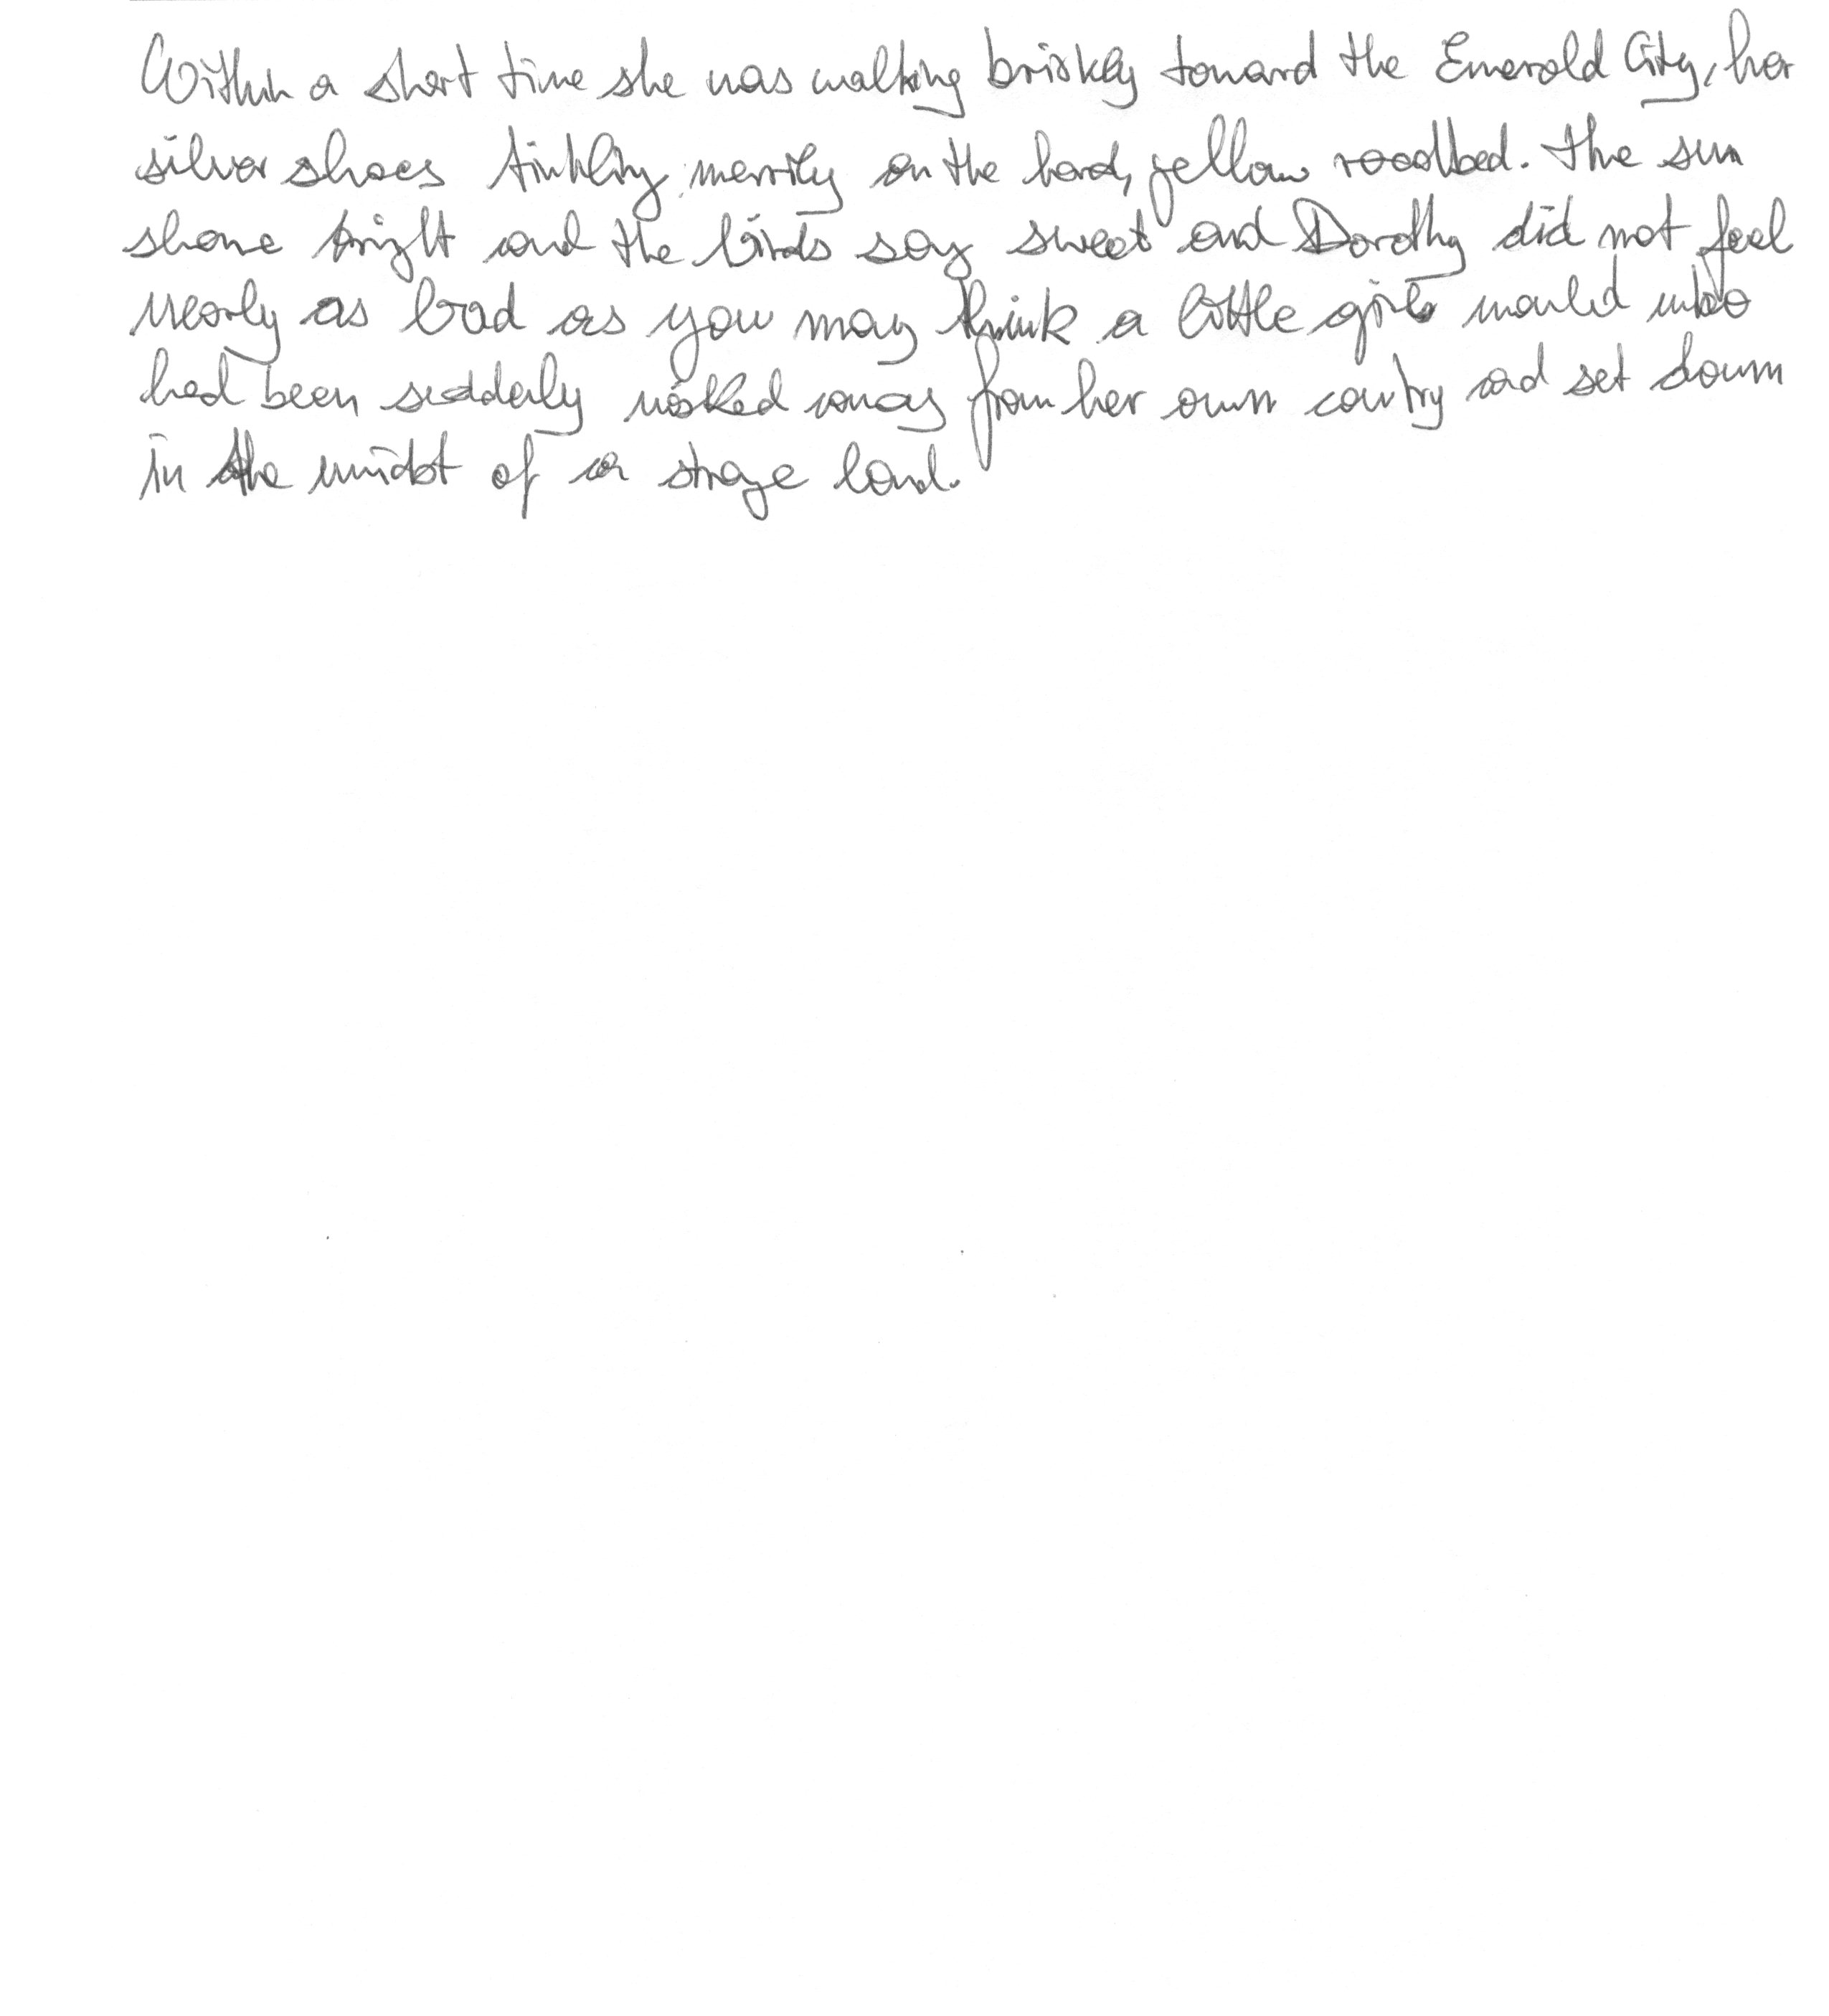 Within a short time she was walking briskly toward the Emerald City, her
silver shoes tinkling merrily on the hard, yellow roadbed. The sun
shone bright and the birds sang sweet and Dorothy did not feel
nearly as bad as you may think a little girl would who
had been suddenly wisked away from her own country and set down
in the midst of a strange land.